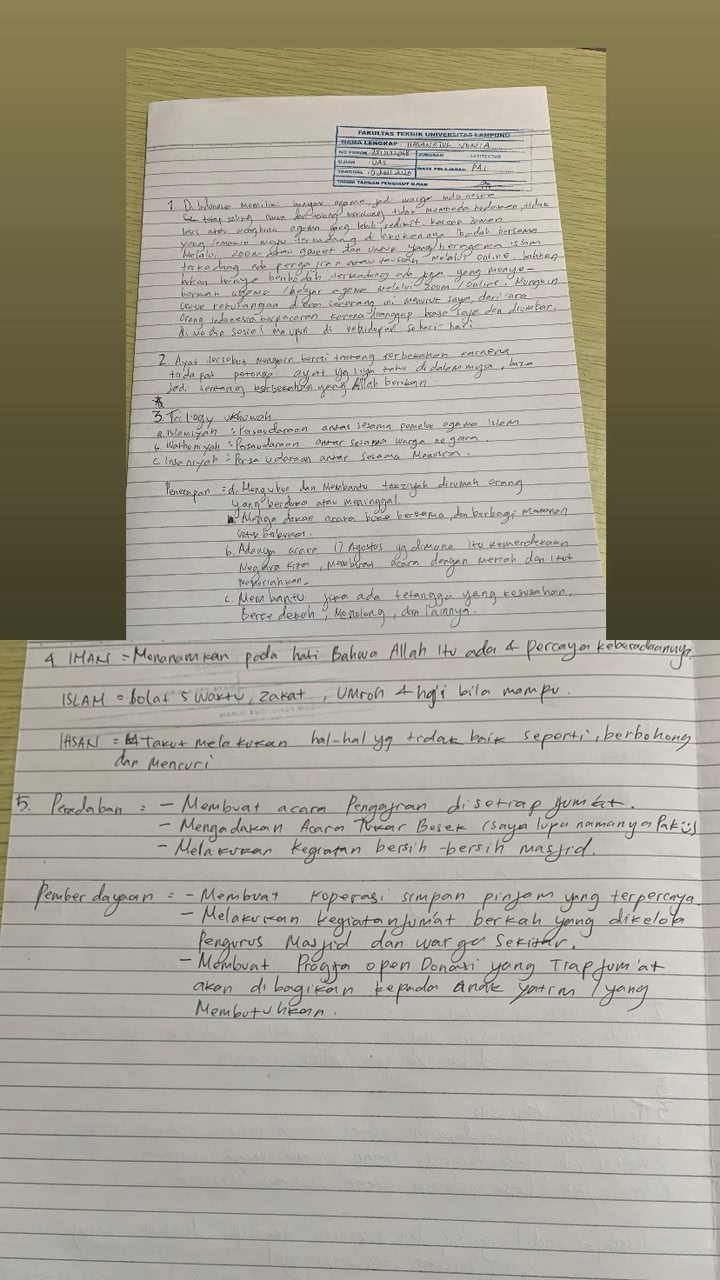 FAKULTAS TEKNIK UNIVERSITAS LAMPUNG
NAMA LENGKAP
NO POKOK JURUSAN ARSITEKTUR
UJIAN UAS MATA PELAJARAN PAI
TANGGAL
TANDA TANGAN PENGIKUT UJIAN
1. Di Indonesia memiliki banyak agama, jadi warga Indonesia
tetap saling dan tolong menolong tidak membeda bedakan, tidak
atau menghina agama yang lebih sedikit. Karena zaman
yang semakin maju terkadang di lakukannya ibadah bersama
Melalui zoom atau gmeet dan untuk yang beragama islam
terkadang ada pengajian atau tausiah melalui online, bahkan
bukan hanya beribadah terkadang ada juga yang menye-
barkan agama / belajar agama melalui zoom / online. Mungkin
untuk kekurangan di era sekarang ini menurut saya, dari cara
orang indonesia berpacaran karena dianggap biasa saja dan diumbar.
di media sosial maupun di kehidupan sehari-hari
2. Ayat tersebut mungkin berisi tentang keberkahan karnena
terdapat potongan ayat yg saya tahu di dalamnya,
Jadi tentang keberkahan yang Allah berikan
3. Trilogy ukhuwah
a. Islamiyah : Persaudaraan antar sesama pemeluk agama Islam
b. Wathoniyah : Persaudaraan antar sesama warga negara.
c. Insaniyah : Persaudaraan antar sesama Manusia.
Penerapan = a. Mengubur dan Membantu takziyah dirumah orang
yang berduka atau meninggal
Mengadakan acara buka bersama, dan berbagi Makanan
untuk berbuka.
b. Adanya acara 17 Agustus yg dimana itu kemerdekaan
Negara kita, Membuat acara dengan meriah dan ikut
c. Membantu jika ada tetangga yang kesusahan,
bersedekah, Menolong, dan lainnya.
4. IMAN = Menanamkan pada hati Bahwa Allah itu ada & percaya keberadaannya.
ISLAM = Solat 5 Waktu, Zakat, Umroh & hgi bila mampu.
IHSAN = Takut melakukan hal-hal yg tidak baik seperti, berbohong
dan Mencuri
5. Peradaban = - Membuat acara Pengajian disetiap Jum'at.
- Mengadakan Acara Tukar Besek (saya lupa namanya Pak)
- Melakukan kegiatan bersih-bersih masjid.
Pemberdayaan = - Membuat koperasi simpan pinjam yang terpercaya.
- Melakukan kegiatan Jum'at berkah yang dikelola
Pengurus Masjid dan warga Sekitar.
- Membuat open Donasi yang Tiap Jum'at
akan dibagikan kepada anak yatim / yang
Membutuhkan.